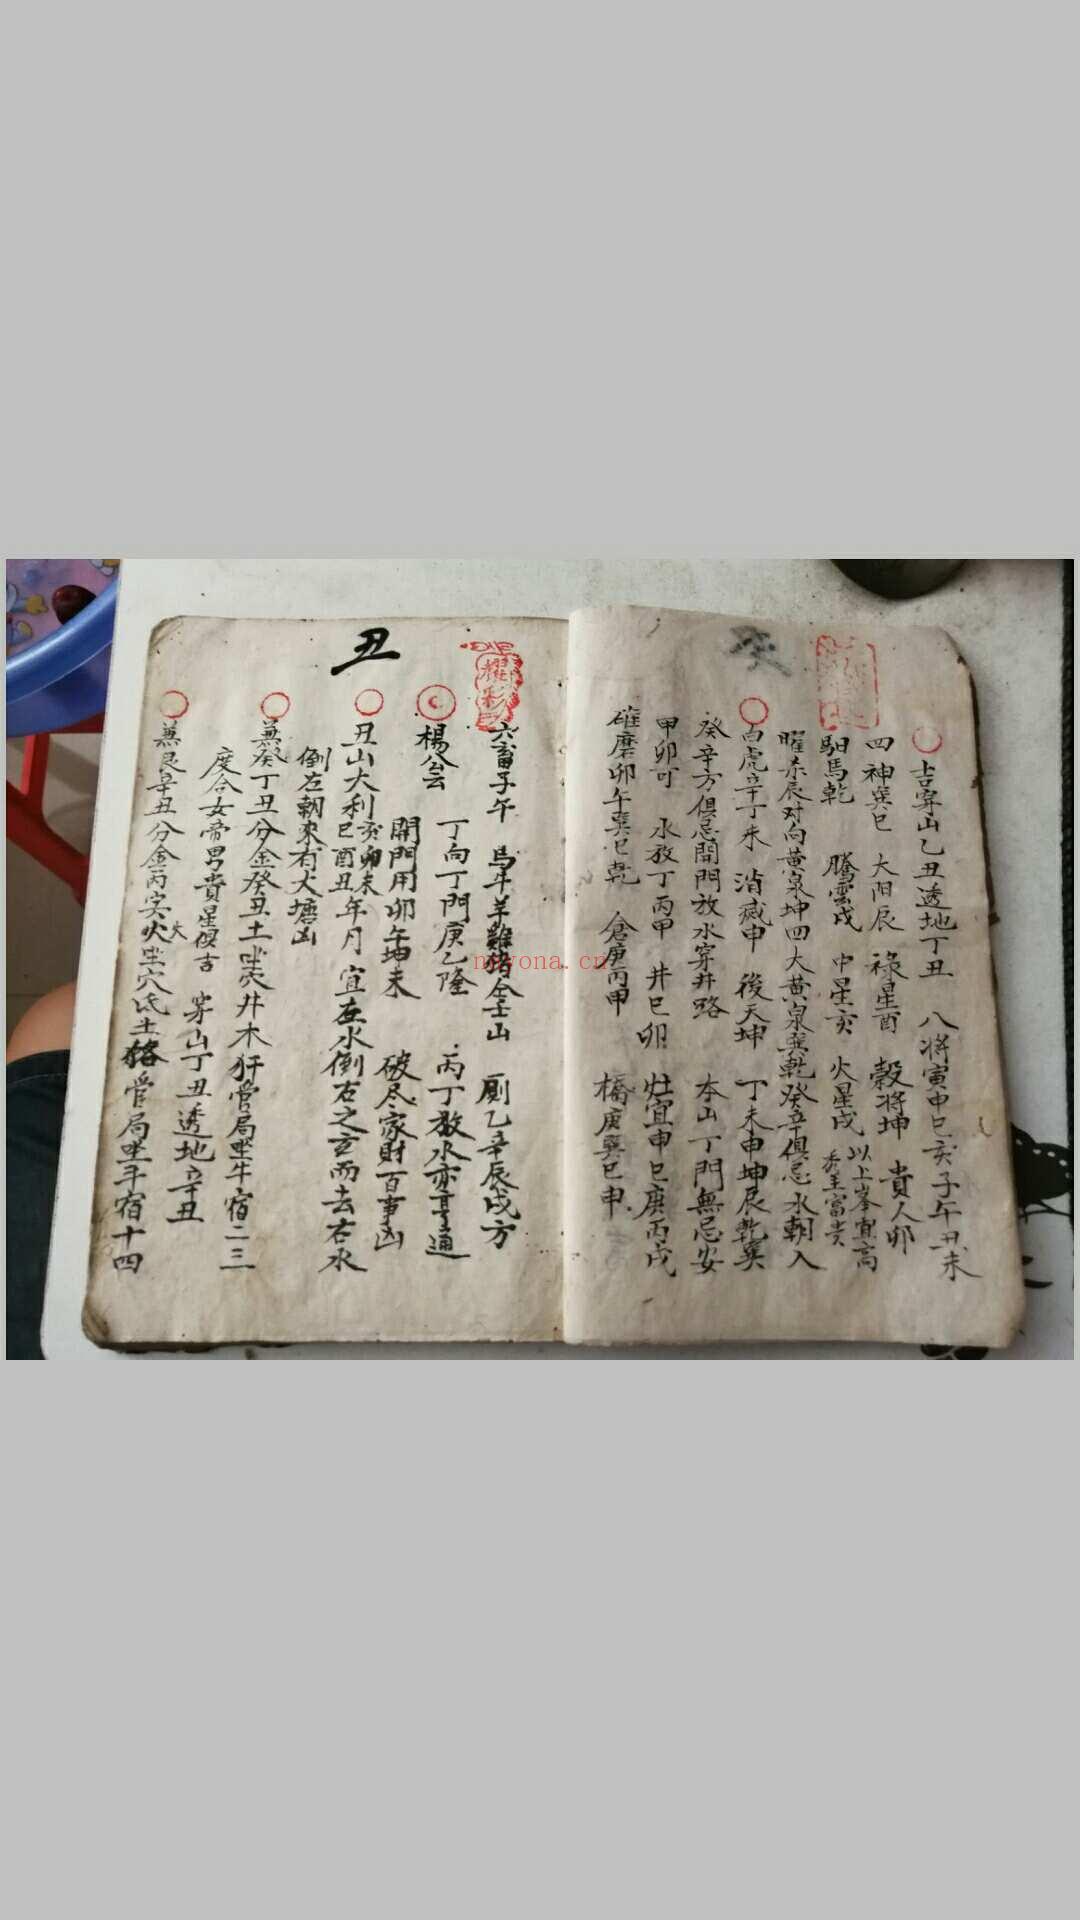 癸
吉穿山乙丑透地丁丑 八將寅申巳亥子午丑未
四神巽巳 太阳辰 祿星酉 穀將坤 貴人卯
馹馬乾 騰雲戌 中星亥 火星戌 以上峯宜高秀主富貴
曜杀辰对向黃泉坤四大黃泉巽乾癸辛俱忌水朝入
白虎辛丁未 消滅申 後天坤 丁未申坤辰乾巽
癸辛方俱忌開門放水穿井路 本山丁門無忌安
甲卯可 水放丁丙甲 井巳卯 灶宜申巳庚丙戌
碓磨卯午巽巳乾 倉庚丙甲 橋庚巽巳申
丑
耀彩
六畜子午 馬牛羊雞猪全壬山 厠乙辛辰戌方
楊公云 丁向丁門庚乙隆 丙丁放水亦亨通
開門用卯午坤未 破尽家財百事凶
丑山大利亥卯未巳酉丑年月 宜左水倒右之玄而去右水
倒左朝來有大塘凶
兼癸丁丑分金癸丑土坐穴井木犴管局坐牛宿二三
度合女帝男貴星俱吉 穿山丁丑透地辛丑
兼艮辛丑分金丙寅火坐穴氐土貉管局坐斗宿十四
nayona.cn